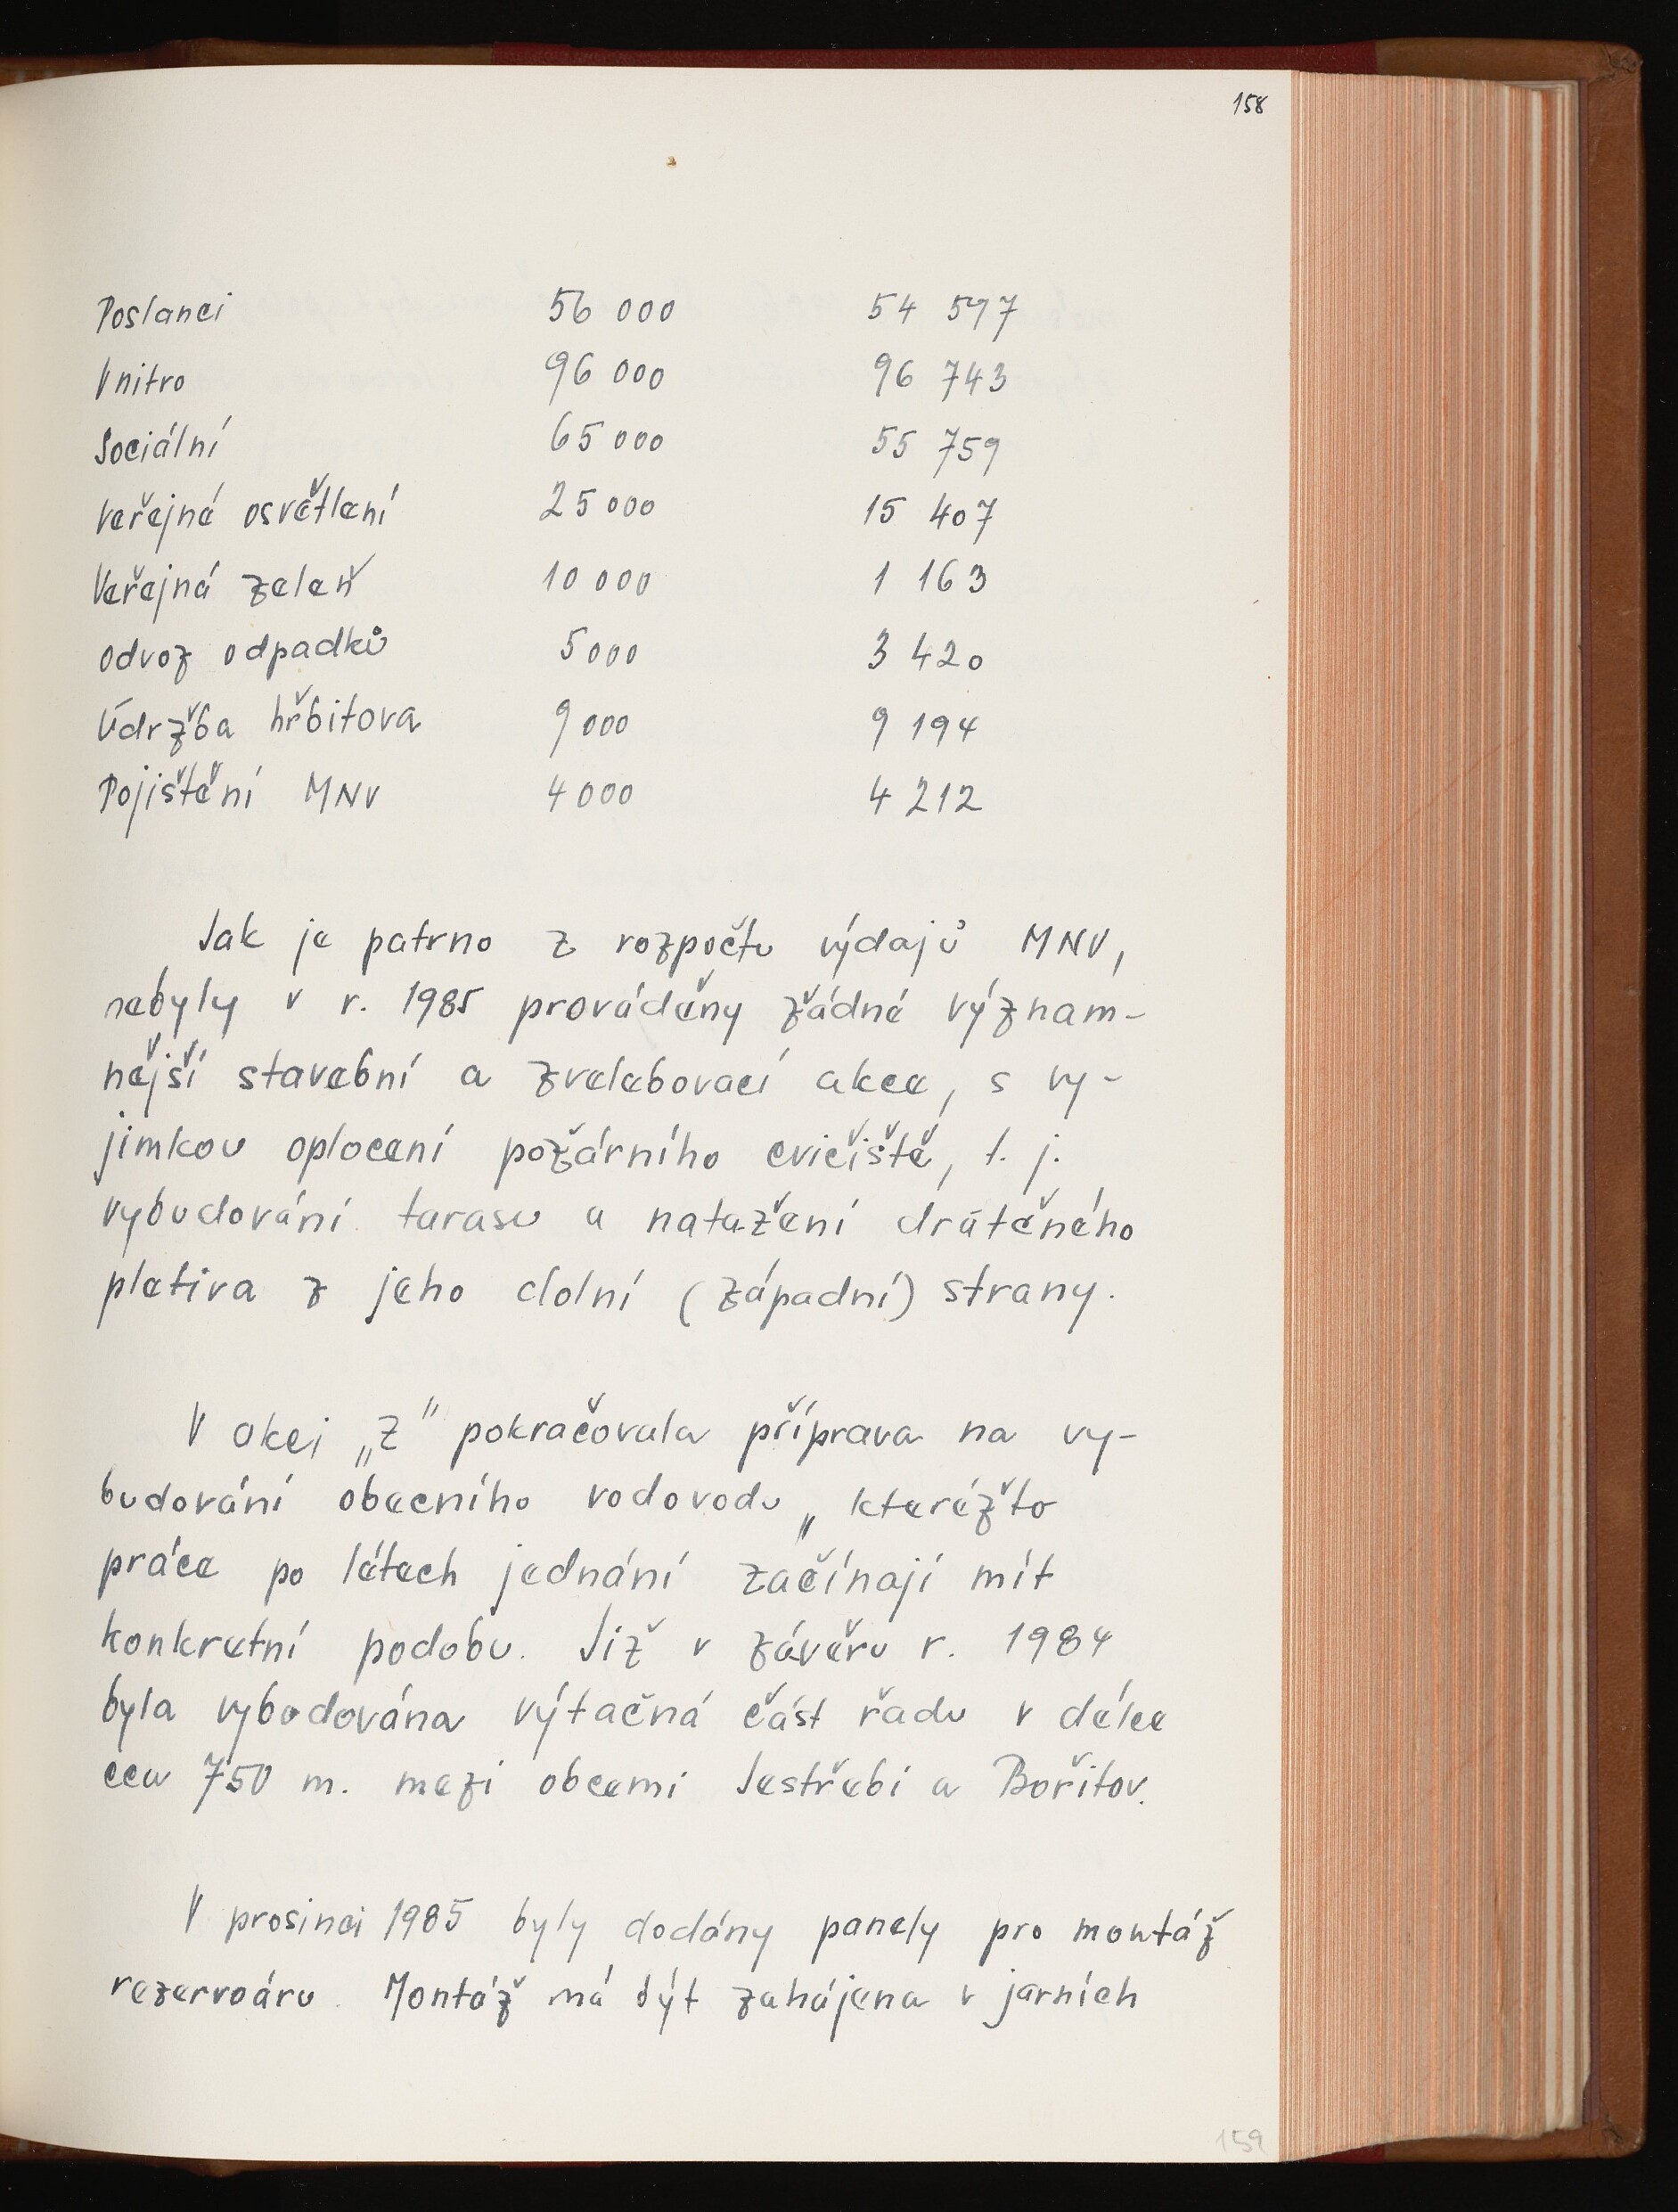 158
Poslanci 56 000 54 597
Vnitro 96 000 96 743
Sociální 65 000 55 759
Veřejné osvětlení 25 000 15 407
Veřejná zeleň 10 000 1 163
Odvoz odpadků 5 000 3 420
Údržba hřbitova 9 000 9 194
Pojištění MNV 4 000 4 212
Jak je patrno z rozpočtu výdajů MNV,
nebyly v r. 1985 prováděny žádné význam-
nější stavební a zvelebovací akce, s vy-
jimkou oplocení požárního cvičiště, t. j.
vybudování tarasu a natažení drátěného
pletiva z jeho dolní (západní) strany.
V akci „Z" pokračovala příprava na vy-
budování obecního vodovodu„ kterážto
práce po létech jednání začínají mít
konkretní podobu. Již v závěru r. 1984
byla vybudována výtačná část řadu v délce
cca 750 m. mezi obcemi Jestřebí a Bořitov.
V prosinci 1985 byly dodány panely pro montáž
rezervoáru. Montáž má být zahájena v jarních
159